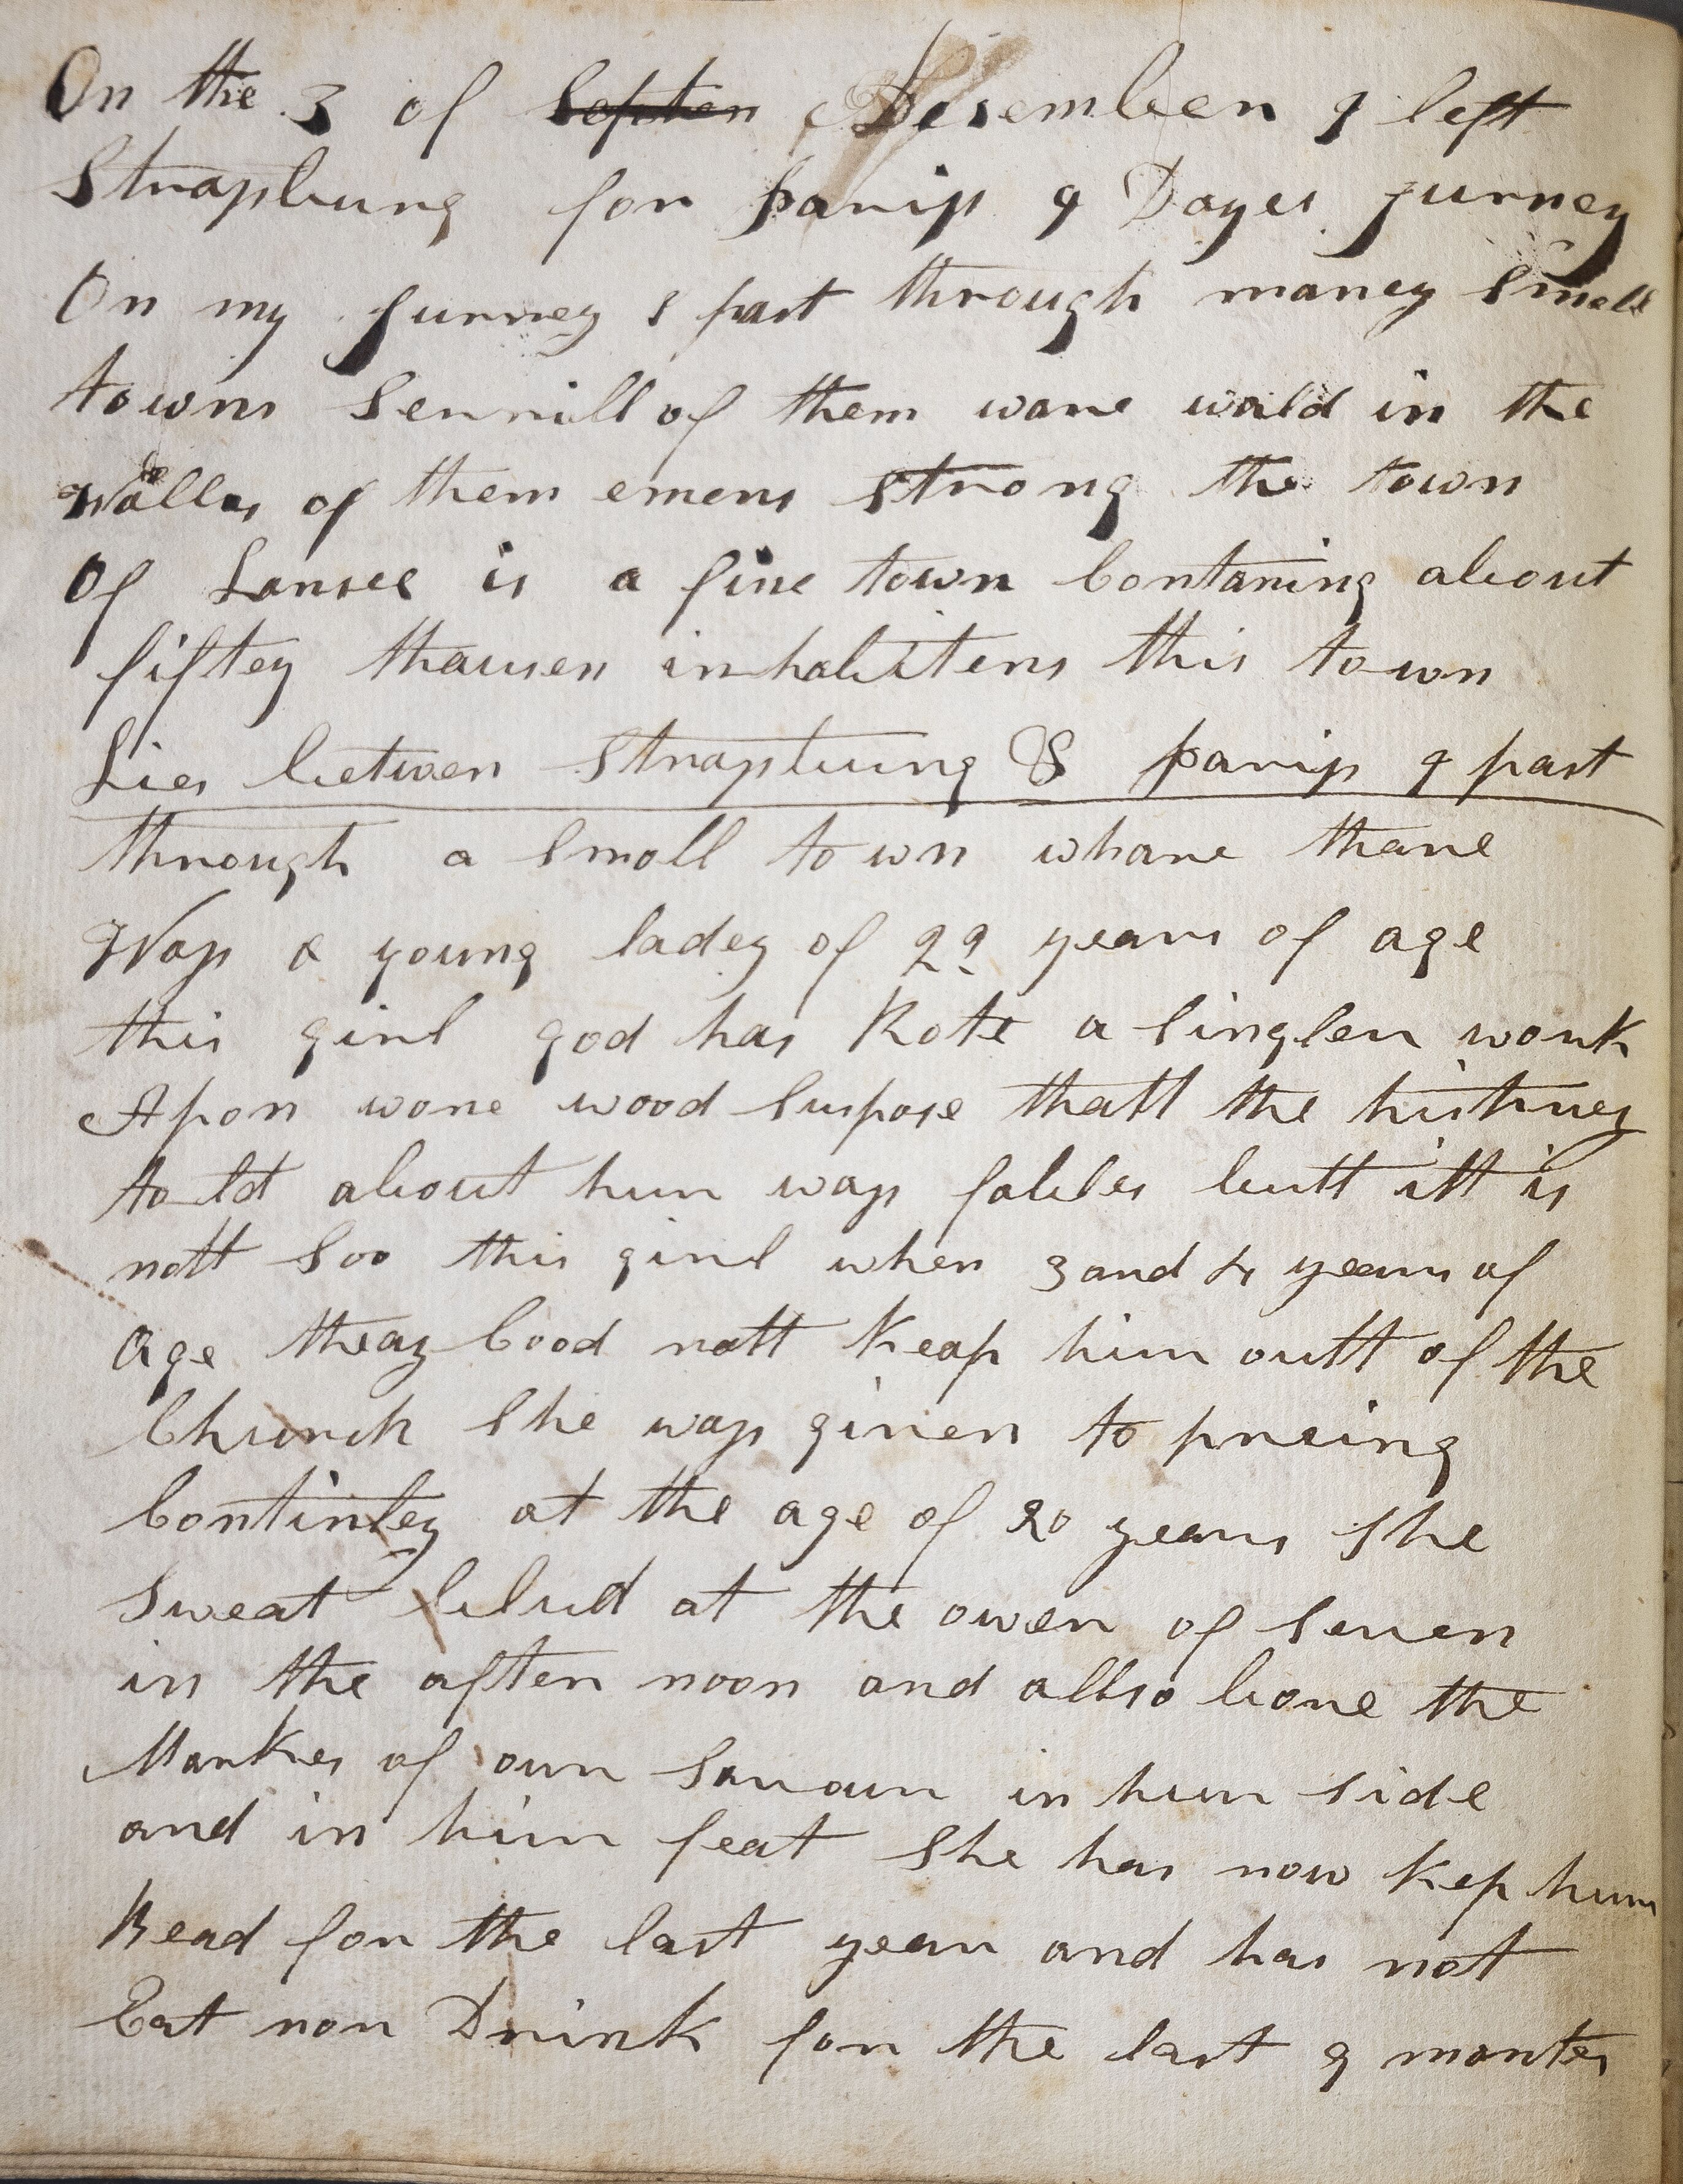 On the 3 of Septem Desember I left
Strasburg for paris 9 Dayes jurney
On my jurney I past through maney Small
towns Servill of them ware wald in the
Walles of them emens strong the town
Of Lansee is a fine town Contaning about
fiftey thausen inhabitens this town
Lies between Strasburg & paris I past
through a Small town whare thare
Was a young ladey of 22 years of age
this girl god has Rote a Singler work
Apon wone wood Suspose thatt the histrey
told about hur was fables butt itt is
nott Soo this girl when 3 and 4 years of
Age theay Cood nott Keap hur outt of the
Church She was given to preing
Continley at the age of 20 years She
Sweat blud at the ower of Seven
in the after noon and allso bore the
Markes of our Savour in hur side
and in hur feat She has now Kep hur
Bead for the last year and has not
Eat nor Drink for the last 9 montes